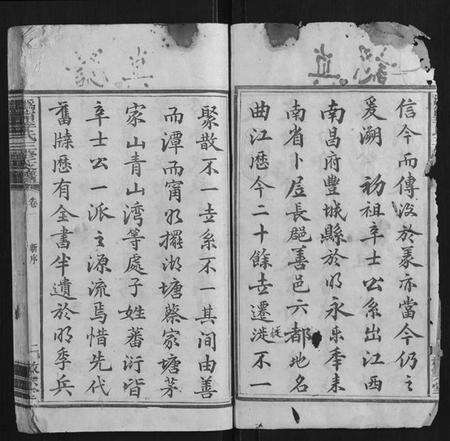 信今而傳後於茲亦當今仍之
爰溯 初祖辛士公系出江西
南昌府豐城縣於明永樂年來
南省卜居長郡善邑六都地名
曲江歷今二十餘世遷徙不一
聚散不一世系不一其間由善
而潭而甯如擺湖塘蔡家塘茅
家山青山湾等處子姓蕃衍皆
辛士公一派之源流焉惜先代
舊牒歷有金書半遺於明季兵
卷
新序
二